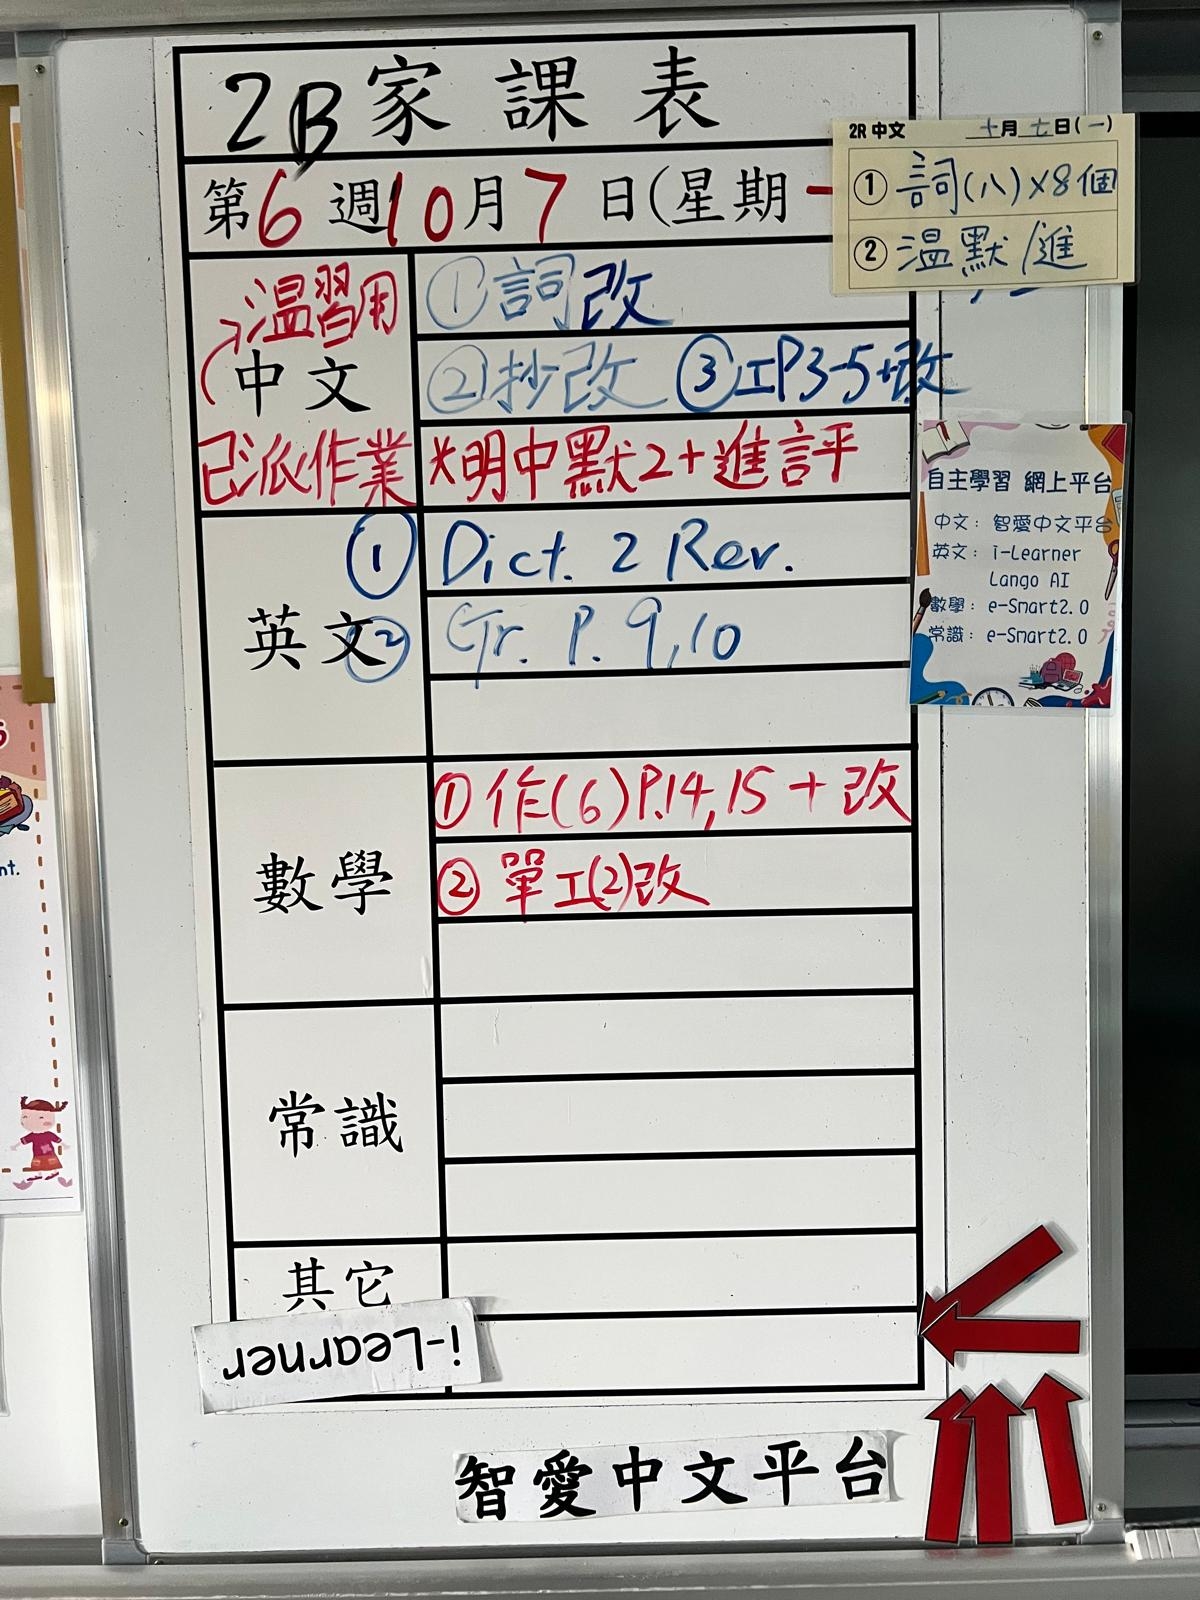 2B家課表
第6週10月7日(星期一
2R中文 十月七日(一)
①詞(八)×8個
②温默/進
温習用
中文
已派作業
①詞改
②抄改 ③工P3-5+改
*明中默2+進評
英文
① Dict. 2 Rev.
② Gr. P. 9,10
自主學習 網上平台
中文：智愛中文平台
英文：i-Learner
Lango AI
數學：e-Smart2.0
常識：e-Smart2.0
數學
①作(6)P.14,15+改
②單工(2)改
常識
其它
i-Learner
智愛中文平台
nt.